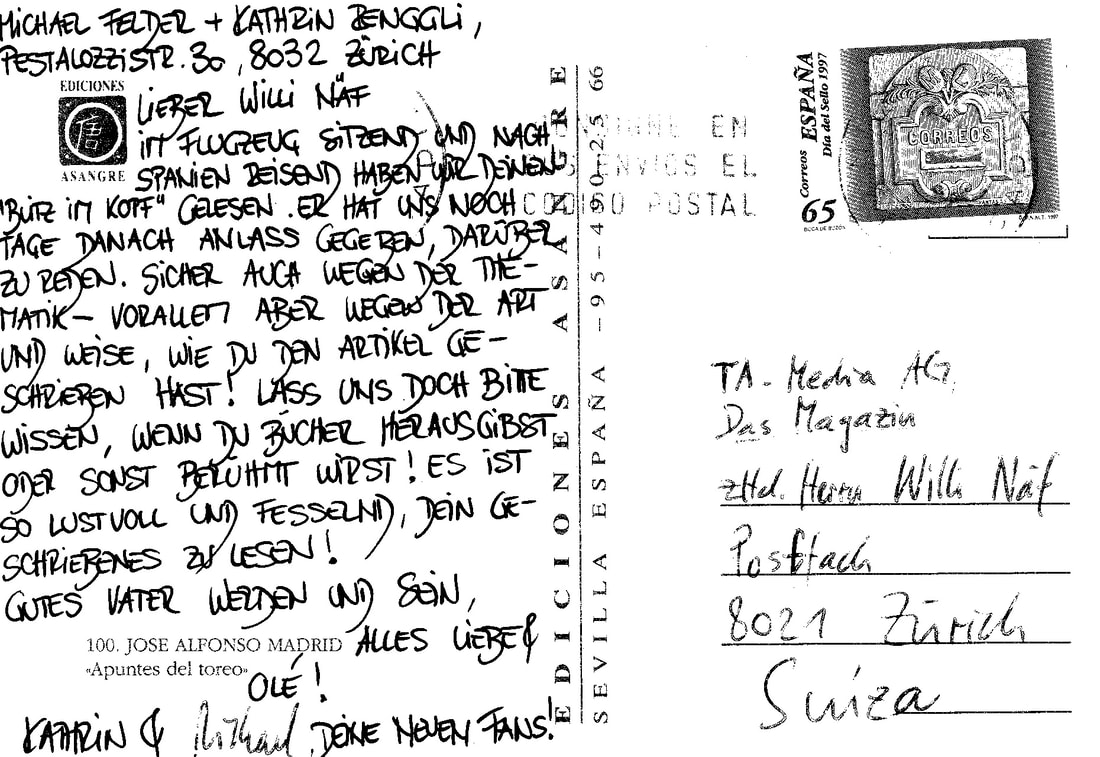 MICHAEL FELDER + KATHRIN RENGGLI,
PESTALOZZISTR. 30, 8032 ZÜRICH
EDICIONES
ASANGRE
LIEBER WILLI NÄF
IM FLUGZEUG SITZEND UND NACH
SPANIEN REISEND HABEN WIR DEINEN
"BLITZ IM KOPF" GELESEN. ER HAT UNS NOCH
TAGE DANACH ANLASS GEGEBEN, DARÜBER
ZU REDEN. SICHER AUCH WEGEN DER THE-
MATIK – VORALLEM ABER WEGEN DER ART
UND WEISE, WIE DU DEN ARTIKEL GE-
SCHRIEBEN HAST! LASS UNS DOCH BITTE
WISSEN, WENN DU BÜCHER HERAUSGIBST
ODER SONST BERÜHMT WIRST! ES IST
SO LUSTVOLL UND FESSELND, DEIN GE-
SCHRIEBENES ZU LESEN!
GUTES VATER WERDEN UND SEIN,
100. JOSE ALFONSO MADRID
«Apuntes del toreo»
ALLES LIEBE &
OLÉ!
KATHRIN & Michael, DEINE NEUEN FANS!
EDICIONES ASANGRE
SEVILLA ESPAÑA - 95 - 490 25 66
EN
ENVIOS EL
CODIGO POSTAL
Correos ESPAÑA
Día del Sello 1997
65
BOCA DE BUZÓN
CORREOS
TA-Media AG
Das Magazin
zHd. Herrn Willi Näf
Postfach
8021 Zürich
Suiza